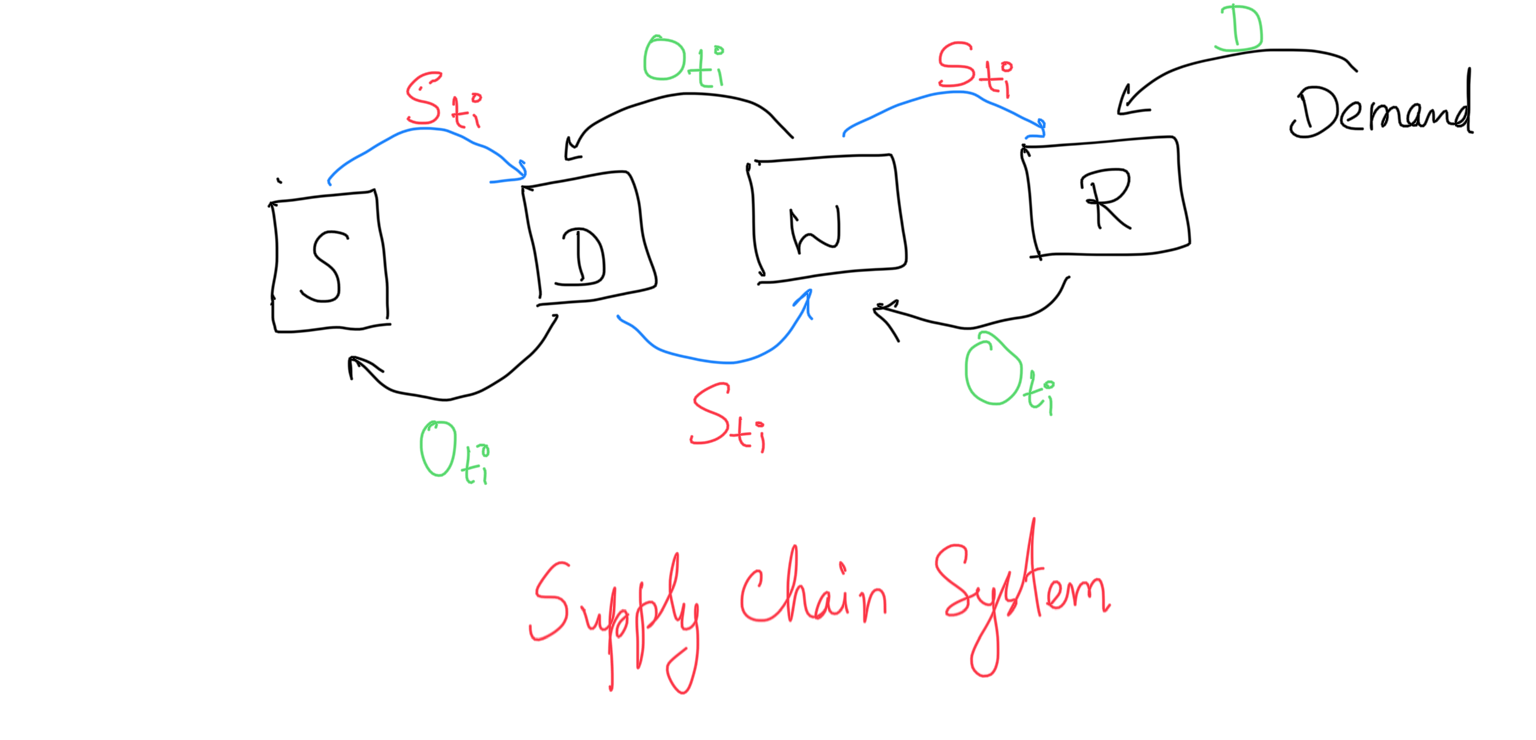 D
O ti
S ti
S ti
Demand
S
D
W
R
O ti
S ti
O ti
Supply Chain System